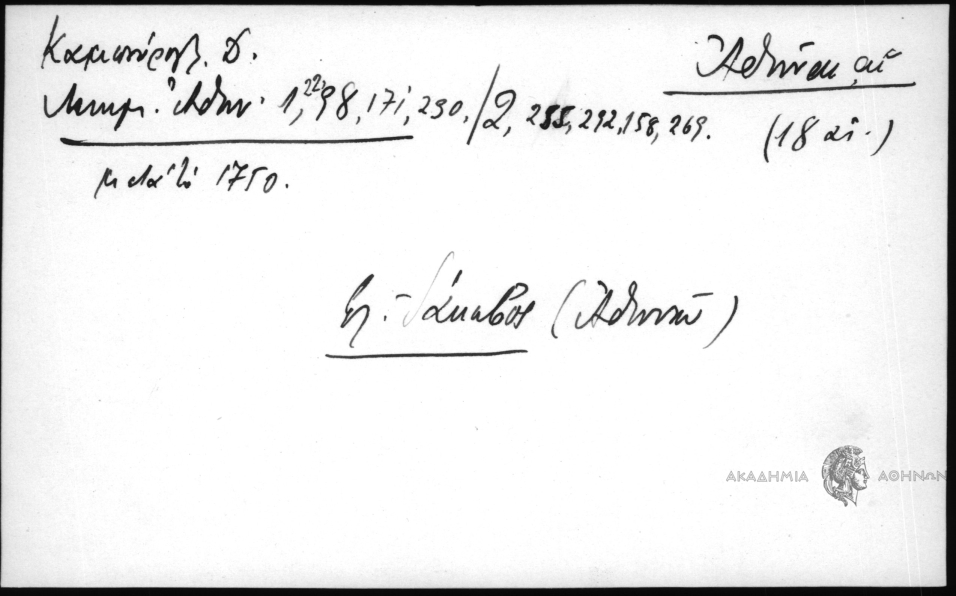 Καμπούρογλ. Δ.
Ἀθῆναι, αἱ
Μνημ. Ἀθην. 1, 22, 98, 171, 230, / 2, 255, 292, 158, 269.
(18 αἰ.)
μετὰ τὸ 1750.
(Ἀθηνῶν)
ΑΚΑΔΗΜΙΑ ΑΘΗΝΩΝ